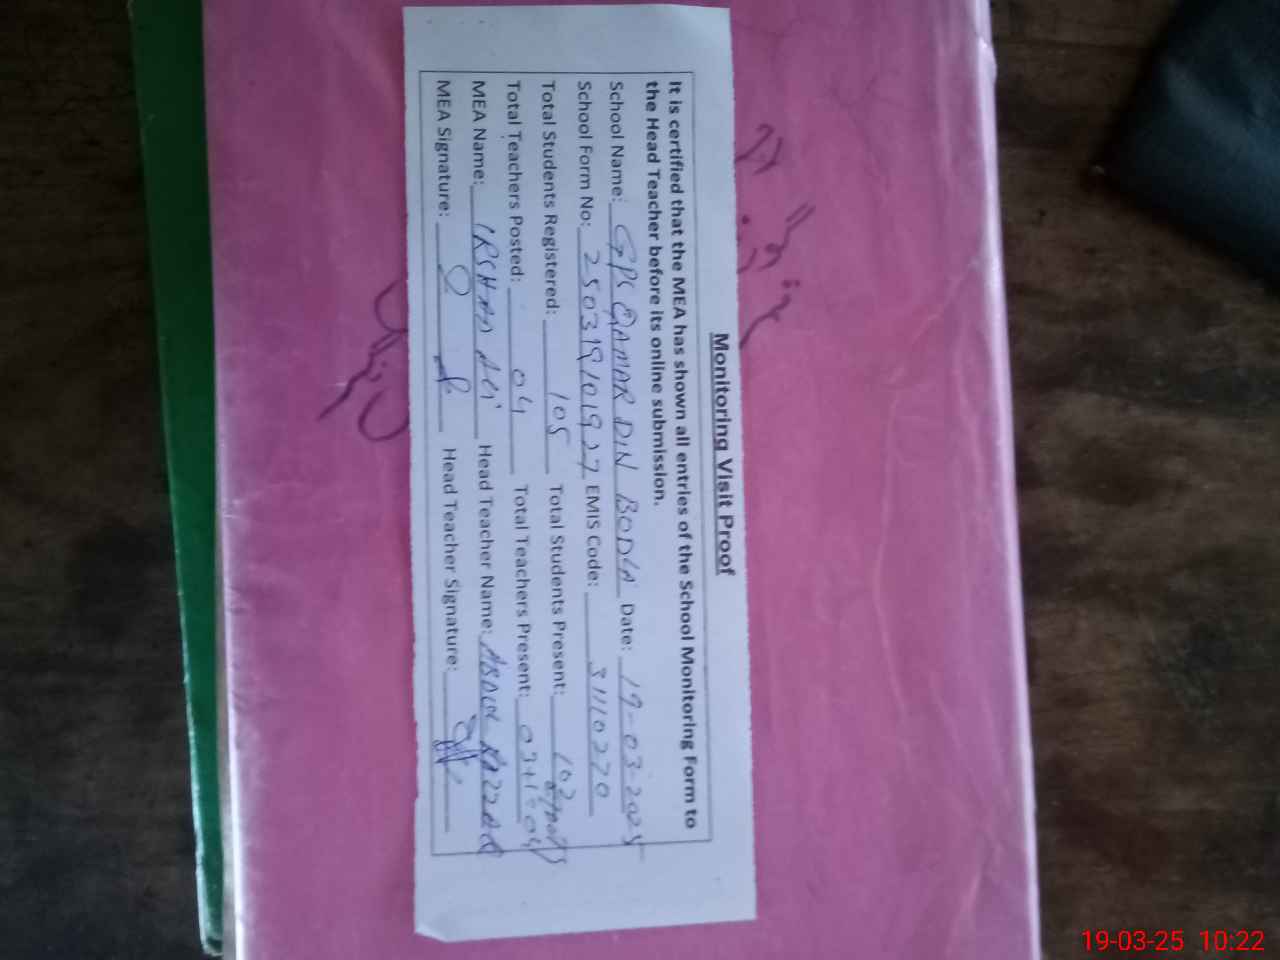 Monitoring Visit Proof
It is certified that the MEA has shown all entries of the School Monitoring Form to
the Head Teacher before its online submission.
School Name: GPS QAMAR DIN BODLA Date: 19-03-2025
School Form No: 250319101927 EMIS Code: 31110270
Total Students Registered: 105 Total Students Present:
Total Teachers Posted: 04 Total Teachers Present: 03+1=04
MEA Name: IRSHAD ALI Head Teacher Name: ABDUL RAZZAQ
MEA Signature: Head Teacher Signature:
19-03-25 10:22